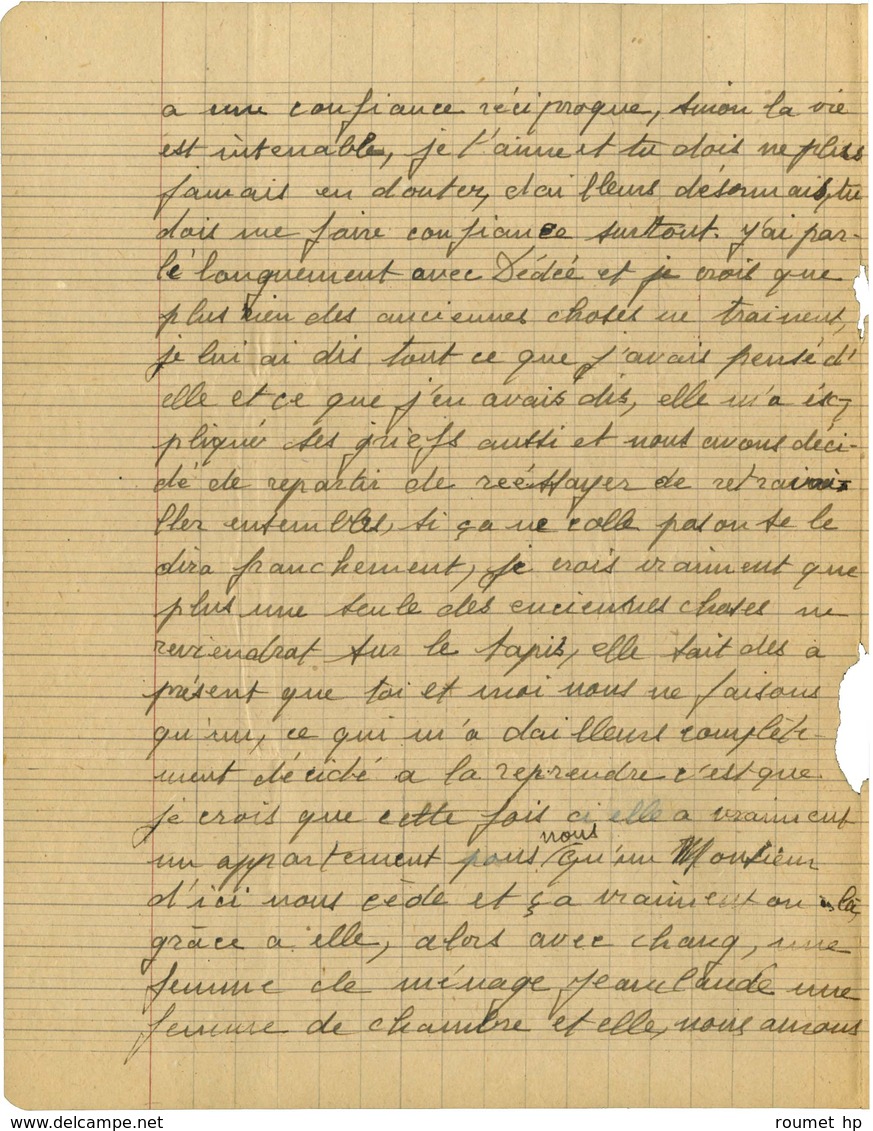 a une confiance réciproque, sinon la vie
est intenable, je t'aime et tu dois ne plus
jamais en douter, dailleurs désormais, tu
dois me faire confiance surtout. J'ai par-
lé longuement avec Dédéé et je crois que
plus rien des anciennes choses ne trainent,
je lui ai dis tout ce que j'avais pensé d'
elle et ce que j'en avais dis, elle m'a éx-
pliqué ses griefs aussi et nous avons déci-
dé de repartir de réessayer de retravai-
ller ensembles, si ça ne colle pas on se le
dira franchement, je crois vraiment que
plus une seule des enciennes choses ne
reviendrat sur le tapis, elle sait des a
présent que toi et moi nous ne faisons
qu'un, ce qui m'a dailleurs complèt-
ment décidé a la reprendre c'est que
je crois que cette fois ci elle a vraiment
un appartement pour nous qu'un Monsieur
d'ici nous cède et ça vraiment on là,
grâce a elle, alors avec chang, une
femme de ménage Jeanclaude une
femme de chambre et elle, nous aurons
roumet hp